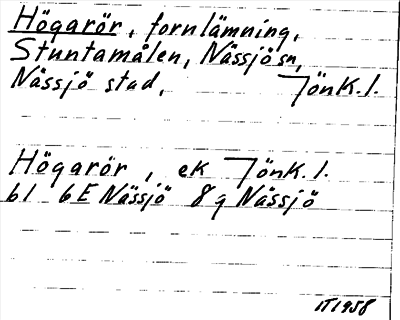 Högarör, fornlämning,
Stuntamålen, Nässjö sn,
Nässjö stad, Jönk. l.
Högarör, ek Jönk. l.
bl 6E Nässjö 8g Nässjö
1958